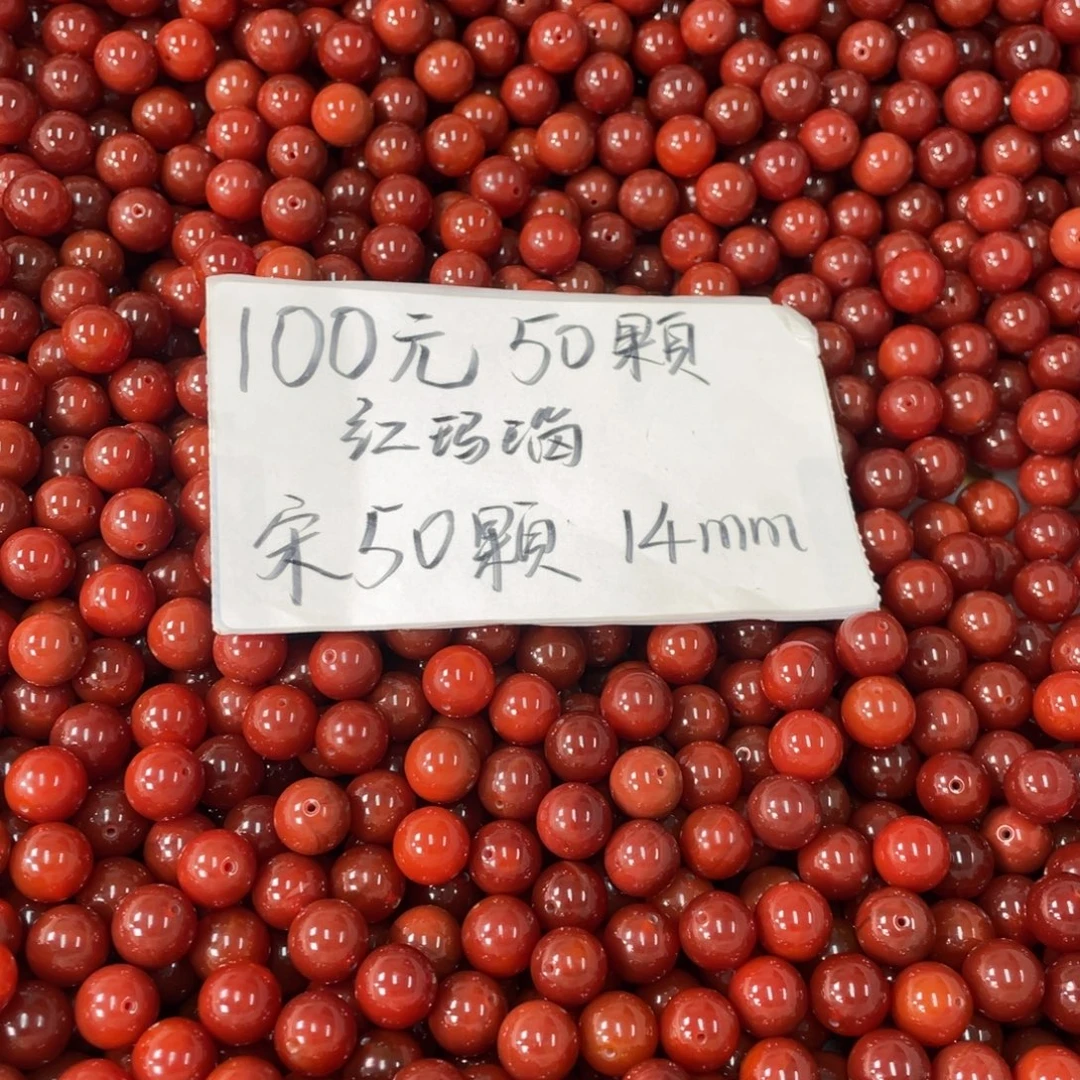 100元 50顆
红玛瑙
宋50顆 14mm